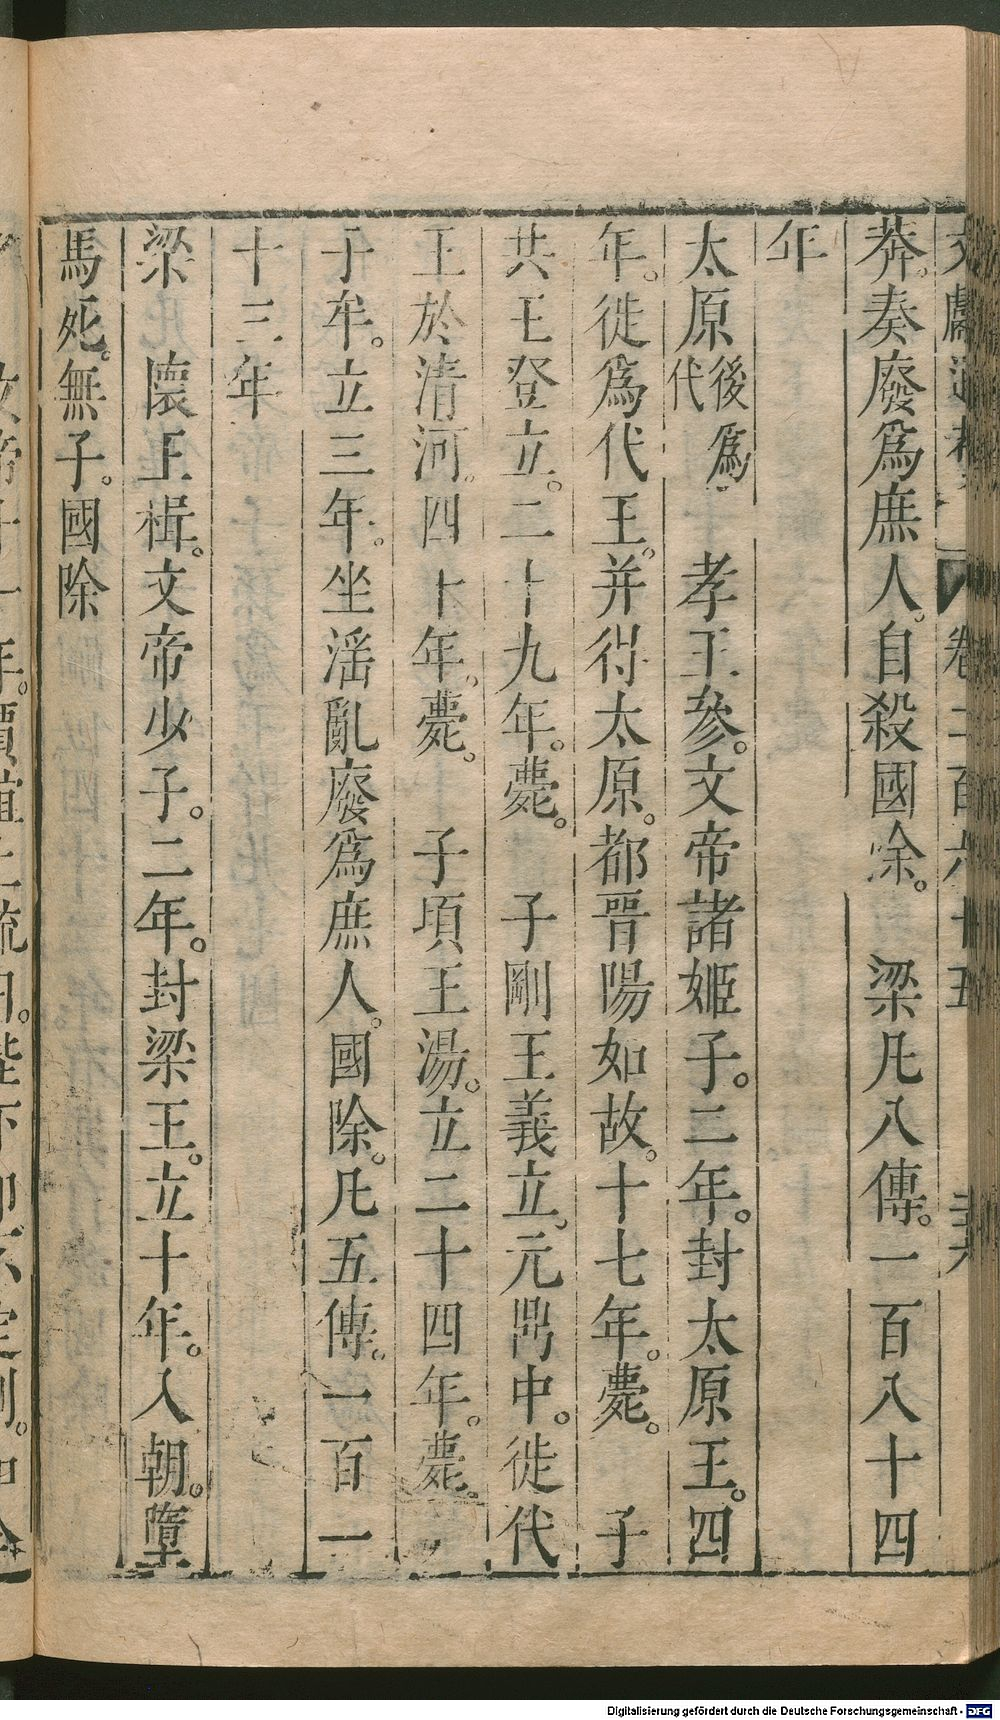 文獻通考 卷二百六十五
莽。奏廢爲庶人。自殺國除。 梁凡八傳。一百八十四
年
太原後爲代 孝王參。文帝諸姬子。二年。封太原王。四
年。徙爲代王。并得太原。都晉陽如故。十七年。薨。 子
共王登立。二十九年。薨。 子剛王義立。元鼎中。徙代
王於清河。四十年。薨。 子頃王湯。立二十四年。薨。
子年。立三年。坐滛亂廢爲庶人。國除。凡五傳。一百一
十三年
梁 懷王楫。文帝少子。二年。封梁王。立十年。入朝。墮
馬死。無子。國除
Digitalisierung gefördert durch die Deutsche Forschungsgemeinschaft - DFG